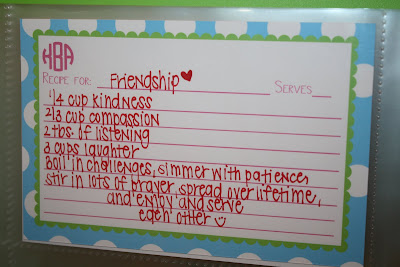 HBA
RECIPE FOR: Friendship
SERVES
1/4 cup kindness
2/3 cup compassion
2 tbs. of listening
3 cups laughter
Boil in challenges, simmer with patience,
stir in lots of prayer, spread over lifetime,
and enjoy and serve
each other